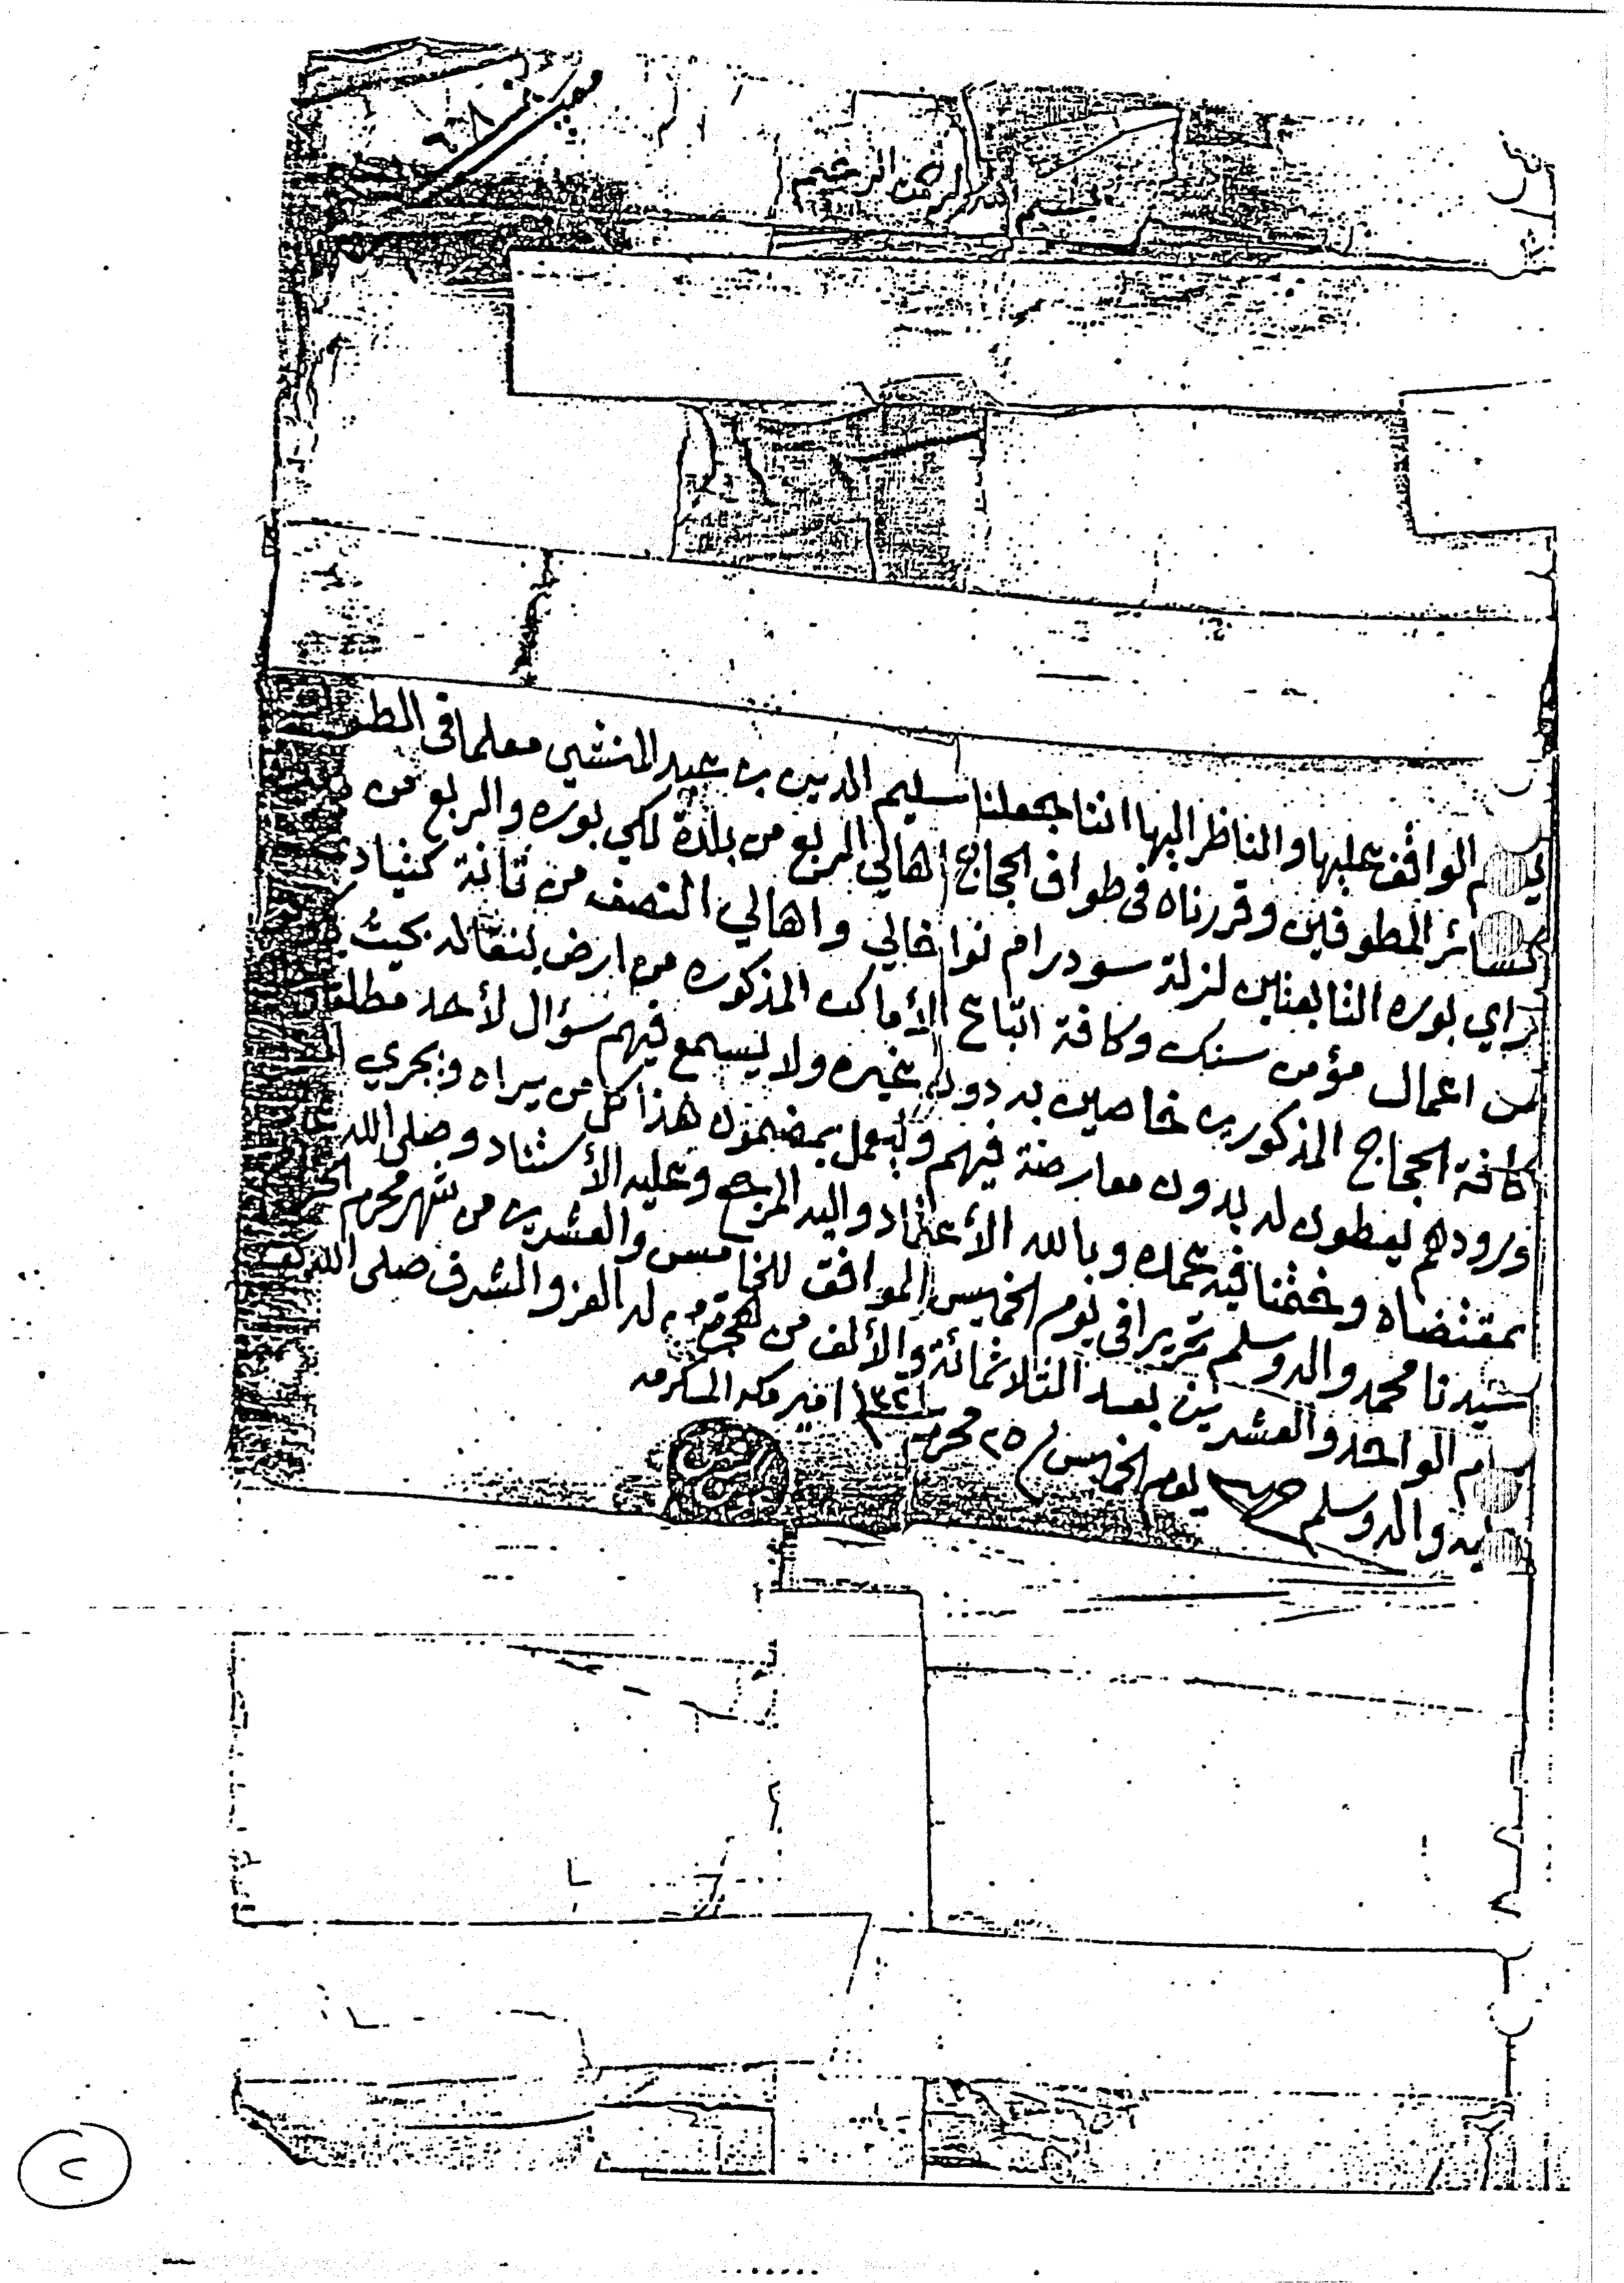 بسم الله الرحمن الرحيم
الواقف عليها والناظر إليها اننا جعلنا سليم الدين بن عبيد المنشي معلما في الطو
كسائر المطوفين وقررناه في طواف الحجاج اهالي الربع من بلدة لكي بوره والربع من
راي بوره التابعتين لزلة سودرام نواخالي واهالي النصف من تانة
من اعمال مؤمن سنك وكافة اتباع الأماكن المذكوره من ارض بنقاله بحيث
كافة الحجاج المذكورين خاصين به دون غيره ولا يسمع فيهم سؤال لأحد مطلقا
ورودهم يعطون له بدون معارضة فيهم وليعمل بمضمون هذا كل من يراه ويجري
بمقتضاه وختمنا فيه عمده وبالله الأعتماد واليه المرجع وعليه الأستناد وصلى الله
سيدنا محمد واله وسلم تحريرا في يوم الخميس الموافق للخامس والعشرين من شهر محرم
الواحد والعشرين بعد الثلاثمائة والألف من هجرة من له العز والشرف صلى الله
واله وسلم يوم الخميس ٢٥ محرم ١٣٢١ امير مكه المكرمه
٢